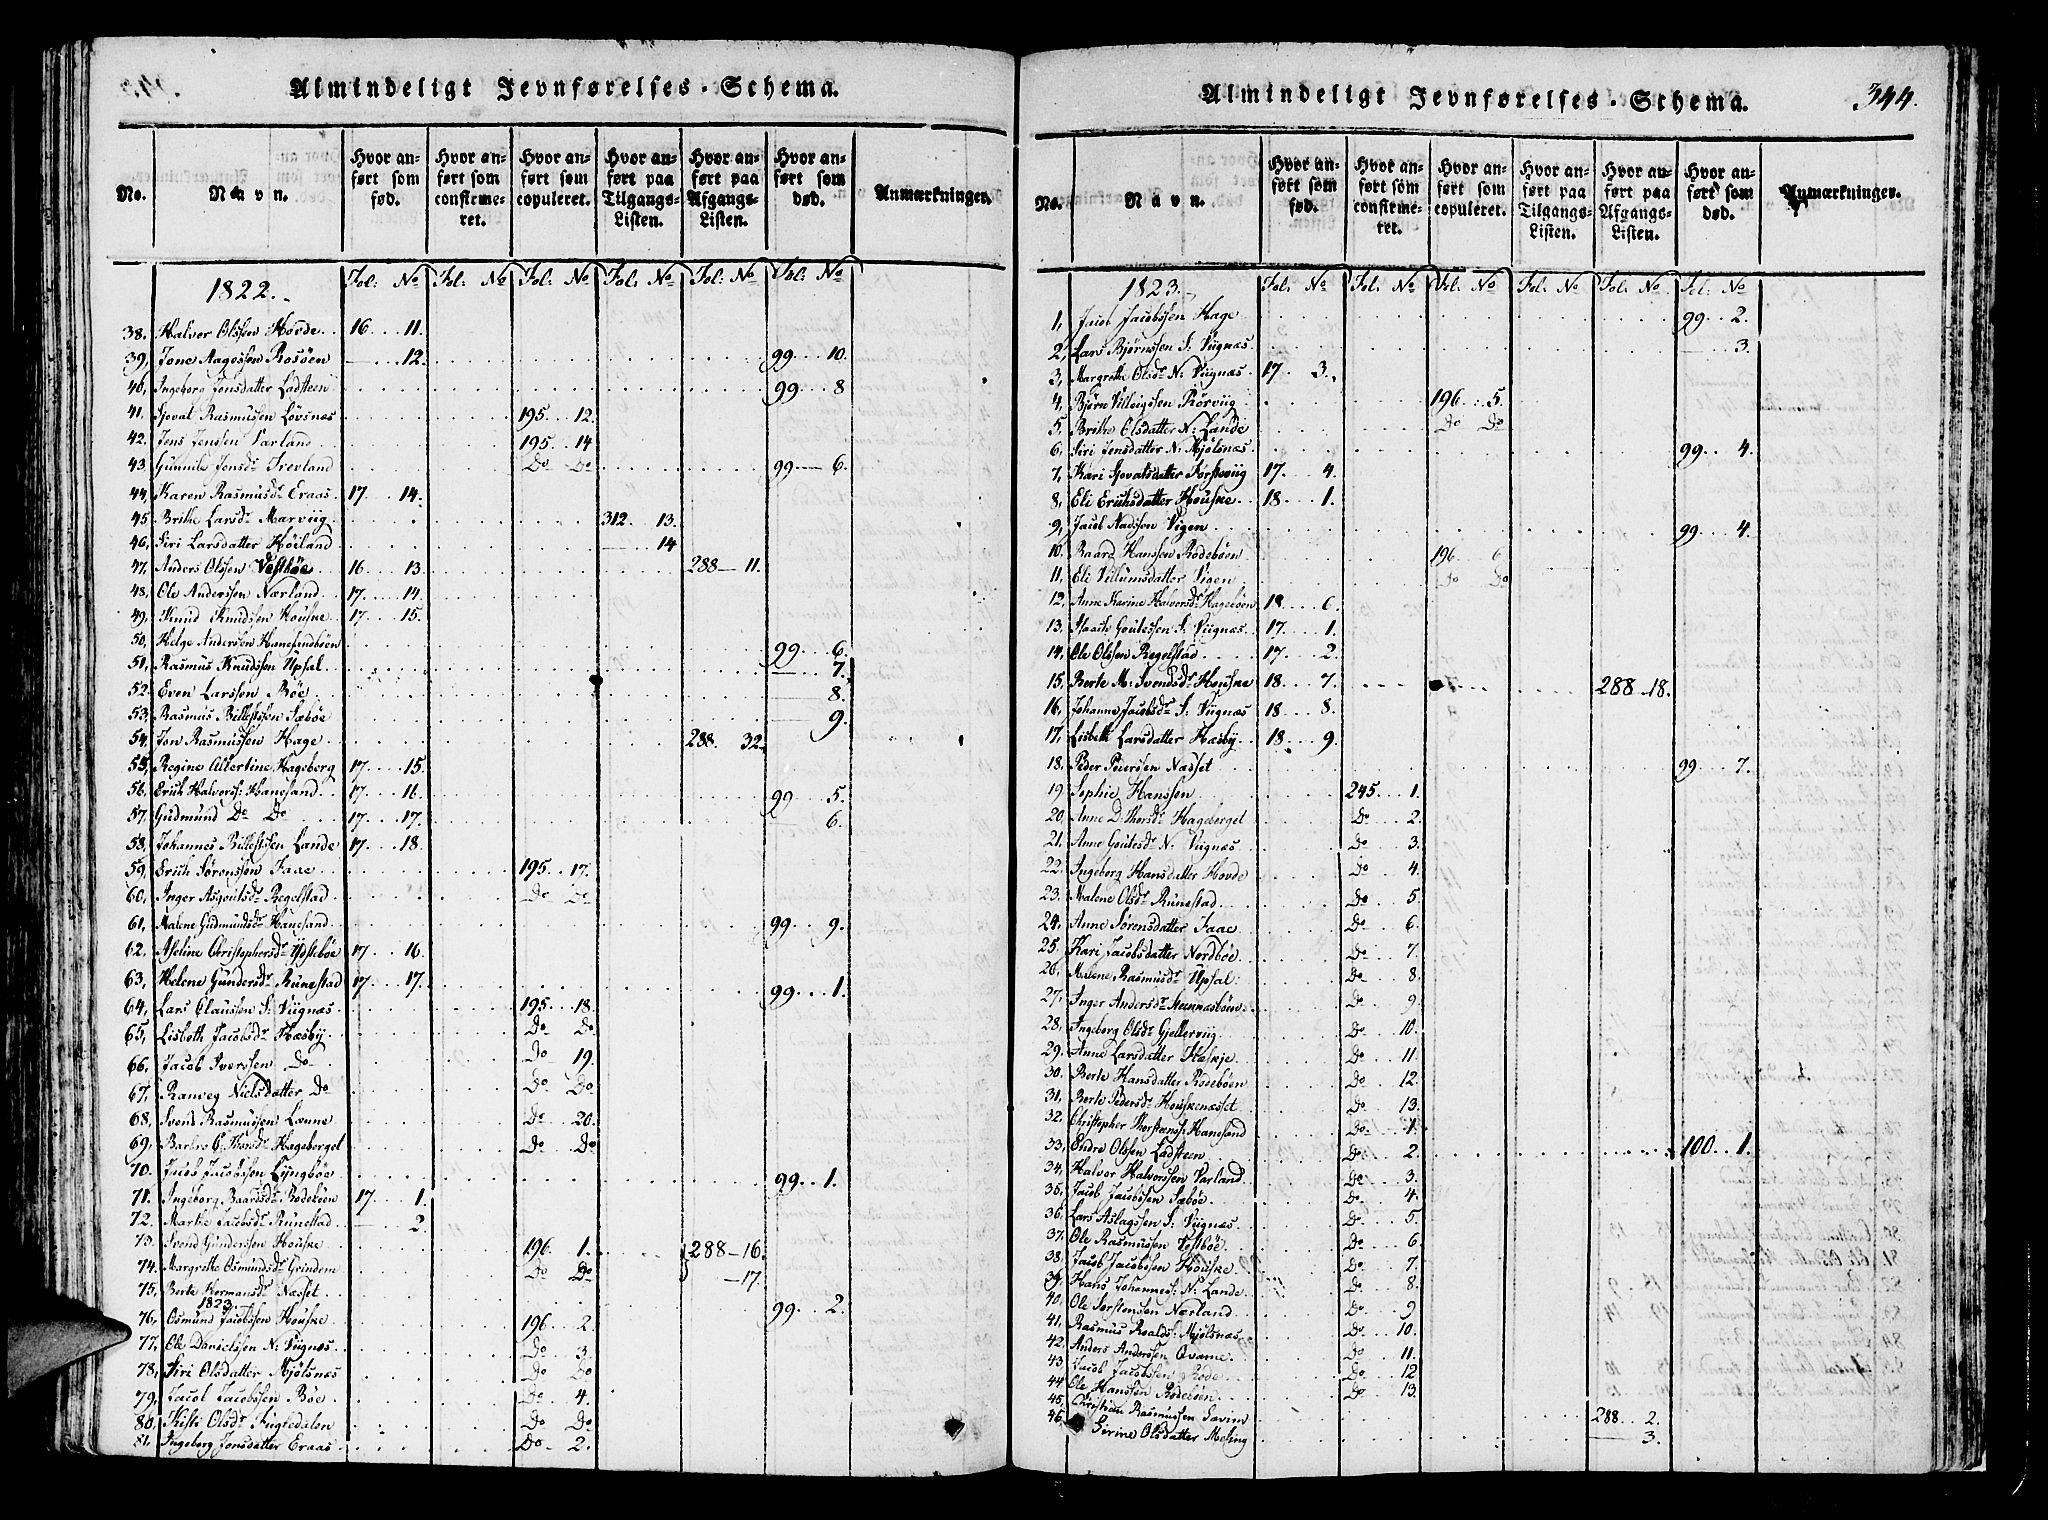 Almindeligt Jevnførelses-Schema.
No. Navn. Hvor anført som fød. Hvor anført som confirmeret. Hvor anført som copuleret. Hvor anført paa Tilgangs-Listen. Hvor anført paa Afgangs-Listen. Hvor anført som død. Anmærkninger.
1822. Fol: No Fol: No Fol: No Fol: No Fol: No Fol: No
38. Halvor Olssen Hovde 16 11.
39. Tone Aagessen Rosøen — 12. 99 10.
40. Ingeborg Jonsdatter Ladsteen 99 8
41. Sjovat Rasmussen Løvsnæs 195 12.
42. Jens Jensen Varland 195 14
43. Gunnile Jonsdr Do Do 99 6.
44. Karen Rasmusdr Eraas 17 14.
45. Brithe Larsdr Marviig 312. 13.
46. Siri Larsdatter Høiland — 14
47. Anders Olssen Vestbøe 16 13. 288 — 11.
48. Ole Anderssen Nærland 17. 14.
49. Knud Knudssen Houske 17 15.
50. Helge Andersen Hanesandbøen 99 6.
51. Rasmus Knudssen Upsal — 7.
52. Even Larssen Bøe 8.
53. Rasmus Billestssen Sæbøe 9.
54. Jon Rasmussen Hage 288. 32.
55. Regine Albertine Hageberg 17. 15.
56. Erich Halvors: Hanesand 17. 16. 99 5.
57. Gudmund Do Do 17. 17. — 6.
58. Johannes Billestsen Lande 17 18.
59. Erich Sørenssen Faae 195 17.
60. Inger Asgoutsdr Regelstad Do Do
61. Malene Gudmundsdr Hanesand 99 9.
62. Aseline Christophersdr Ydstebøe 17 16.
63. Helene Gundersdr Runestad 17. 17. 99 1.
64. Lars Claussen S: Viignæs 195 18.
65. Lisbeth Jacobsdr Hæsby Do Do
66. Jacob Iverssen Do Do 19.
67. Ranveg Nielsdatter Do Do Do
68. Svend Rasmussen Lønne Do 20.
69. Barbro C. Thorsdr Hageberget Do Do
70. Jacob Jacobssen Lyngbøe 99 1.
71. Ingeborg Baardsdr Rødebøen 17 1.
72. Marthe Jacobsdr Runestad — 2.
73. Svend Gunderssen Houske 196 1. 288 — 16.
74. Margrethe Osmundsdr Grindem Do Do — 17.
75. Berte Hermansdr Næsset
1823
76. Osmund Jacobssen Houske 196 2. 99 2.
77. Ole Danielssen N: Viignæs Do 3.
78. Siri Olsdatter Mjølsnæs Do Do
79. Jacob Jacobssen Bøe Do 4.
80. Kisti Olsdr Do Do
81. Ingeborg Jonsdatter Eraas Do 2.
Almindeligt Jevnførelses-Schema. 344.
No. Navn. Hvor anført som fød. Hvor anført som confirmeret. Hvor anført som copuleret. Hvor anført paa Tilgangs-Listen. Hvor anført paa Afgangs-Listen. Hvor anført som død. Anmærkninger.
1823. Fol: No Fol: No Fol: No Fol: No Fol: No Fol: No
1. Jacob Jacobssen Hage 99 2.
2. Lars Bjørnssen S: Viignæs — 3.
3. Margrethe Olsdr N: Viignæs 17 3.
4. Bjørn Villeigssen Rørviig 196 5.
5. Brithe Olsdatter N: Lande Do Do
6. Siri Jonsdatter N: Mjølsnæs 99 4.
7. Kari Sjovatsdatter 17 4.
8. Eli Erichsdatter Houske 18 1.
9. Jacob Vigen 99 4.
10. Baard Hanssen Rødebøen 196 6
11. Eli Villumsdatter Vigen Do Do
12. Anne Karine Halvorsdr Hagebøen 18 6.
13. Isaach Goutessen S: Viignæs 17 1.
14. Ole Olssen Regelstad 17 2.
15. Berte M: Svendsdr Houske 18 7. 288 — 18.
16. Johanne Jacobsdr S: Viignæs 18 8.
17. Lisbeth Larsdatter Hæsby 18 9.
18. Peder Peterssen Næsset 99 7.
19 Sophie Hanssen 245 1.
20. Anne D: Thorsdr Hageberget Do 2.
21. Anne Goutesdr N: Viignæs Do 3.
22. Ingeborg Hansdatter Hovde Do 4.
23. Malene Olsdr Runestad Do 5.
24. Anne Sørensdatter Faae Do 6.
25. Kari Jacobsdatter Nordbøe Do 7.
26. Malene Rasmusdr Upsal Do 8.
27. Inger Andersdr Do 9.
28. Ingeborg Olsdr Gjellerviig Do 10.
29. Anne Larsdatter Hæskje Do 11.
30. Berte Hansdatter Rødebøen Do 12.
31. Berte Pedersdr Houskenæsset Do 13.
32. Christopher Thorstens: Hanesand Do 1.
33. Endre Olssen Ladsteen Do 2. 100 1.
34. Halvor Halvorssen Varland Do 3.
35. Jacob Jacobssen Sæbøe Do 4.
36. Lars Aslagssen S: Viignæs Do 5.
37. Ole Rasmussen Vestbøe Do 6
38. Jacob Jacobssen Houske Do 7.
39. Hans Johannes: N: Lande Do 8.
40. Ole Nærland Do 9
41. Rasmus Roalds: Mjølsnæs Do 10.
42. Anders Anderssen Qvame Do 11.
43 Jacob Jacobssen Røde Do 12
44 Ole Hanssen Rødebøen Do 13.
45. Christian Rasmussen 288 2.
46. Serine Olsdatter Meling — 3.